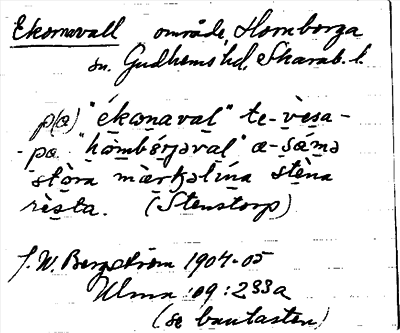 Ekornavall område, Hornborga
sn. Gudhems hd, Skarab. l.
p(a) "ékornaval" te-vèsa-
-pa "hòmbérjaval" æ-sáma
stòra mærkəlína sténa
rèsta. (Stenstorp)
J. W. Bergström 1904-05
Ulma :09:233a
(se bautasten)